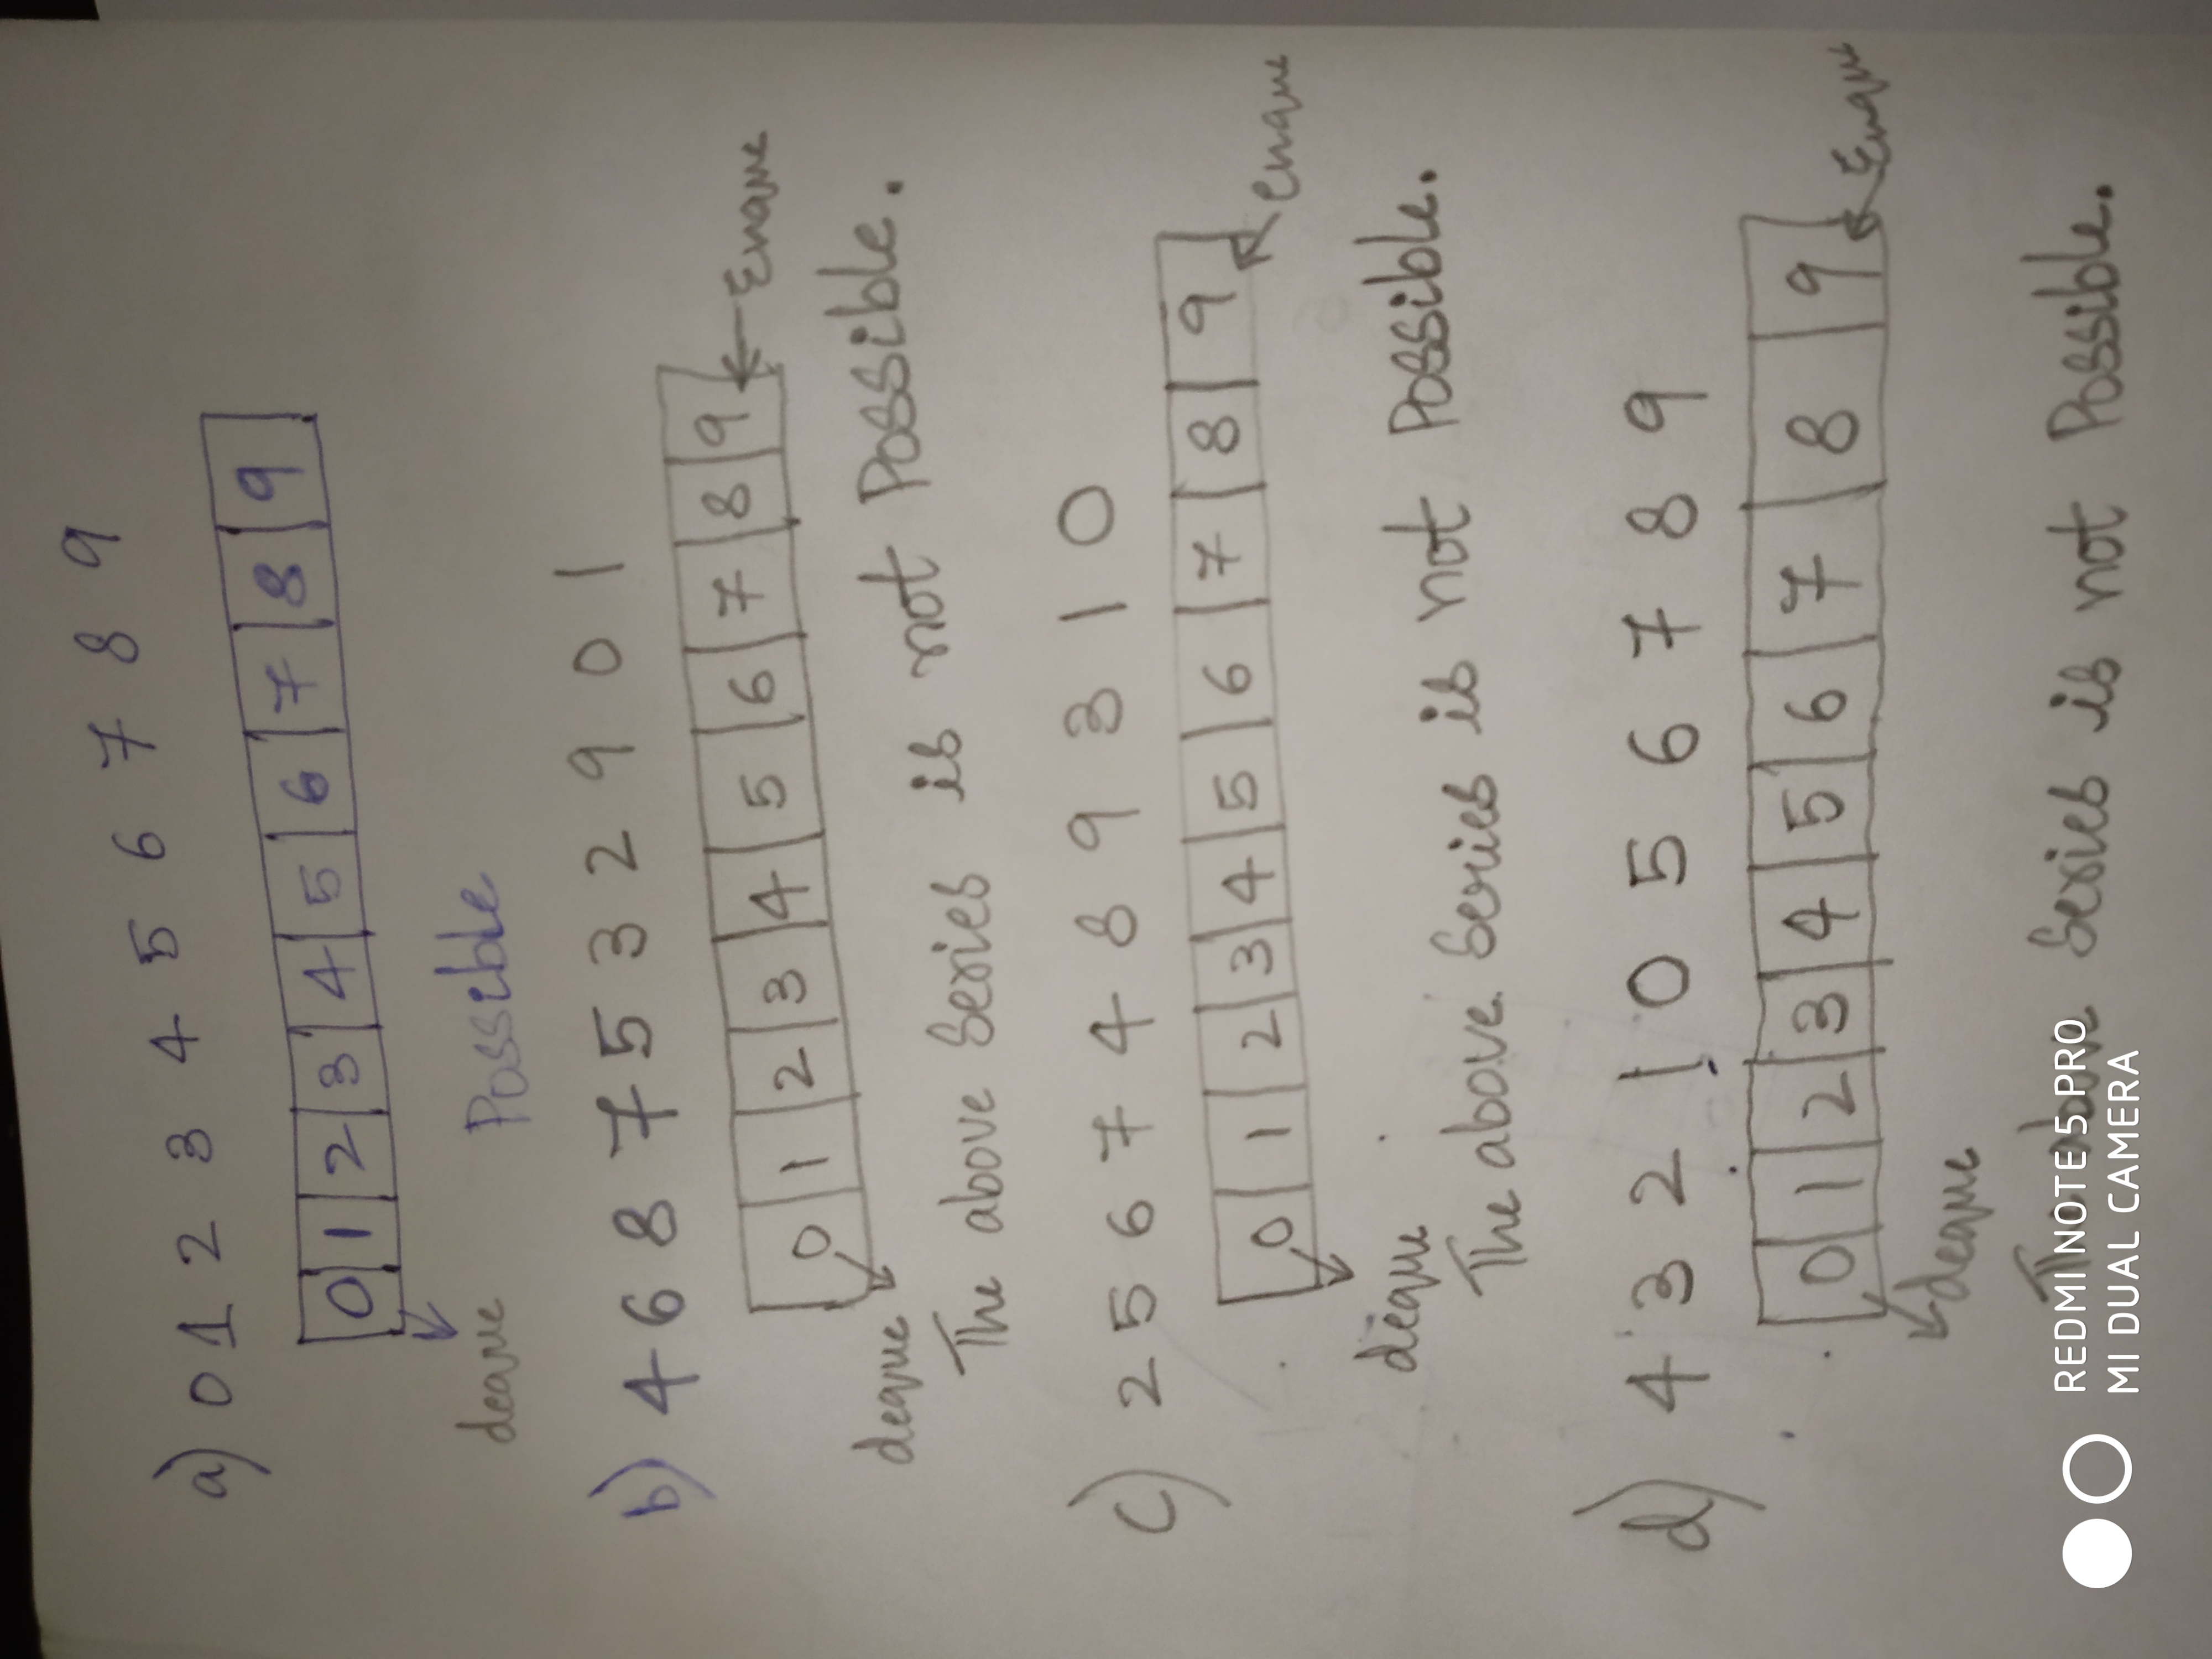 a) 0 1 2 3 4 5 6 7 8 9
0 1 2 3 4 5 6 7 8 9
deque Possible
b) 4 6 8 7 5 3 2 9 0 1
0 1 2 3 4 5 6 7 8 9 Enque
deque
The above Series is not Possible.
c) 2 5 6 7 4 8 9 3 1 0
0 1 2 3 4 5 6 7 8 9
enque
deque
The above Series is not Possible.
d) 4 3 2 1 0 5 6 7 8 9
0 1 2 3 4 5 6 7 8 9 Enque
deque
The above Series is not Possible.
REDMI NOTE 5 PRO
MI DUAL CAMERA